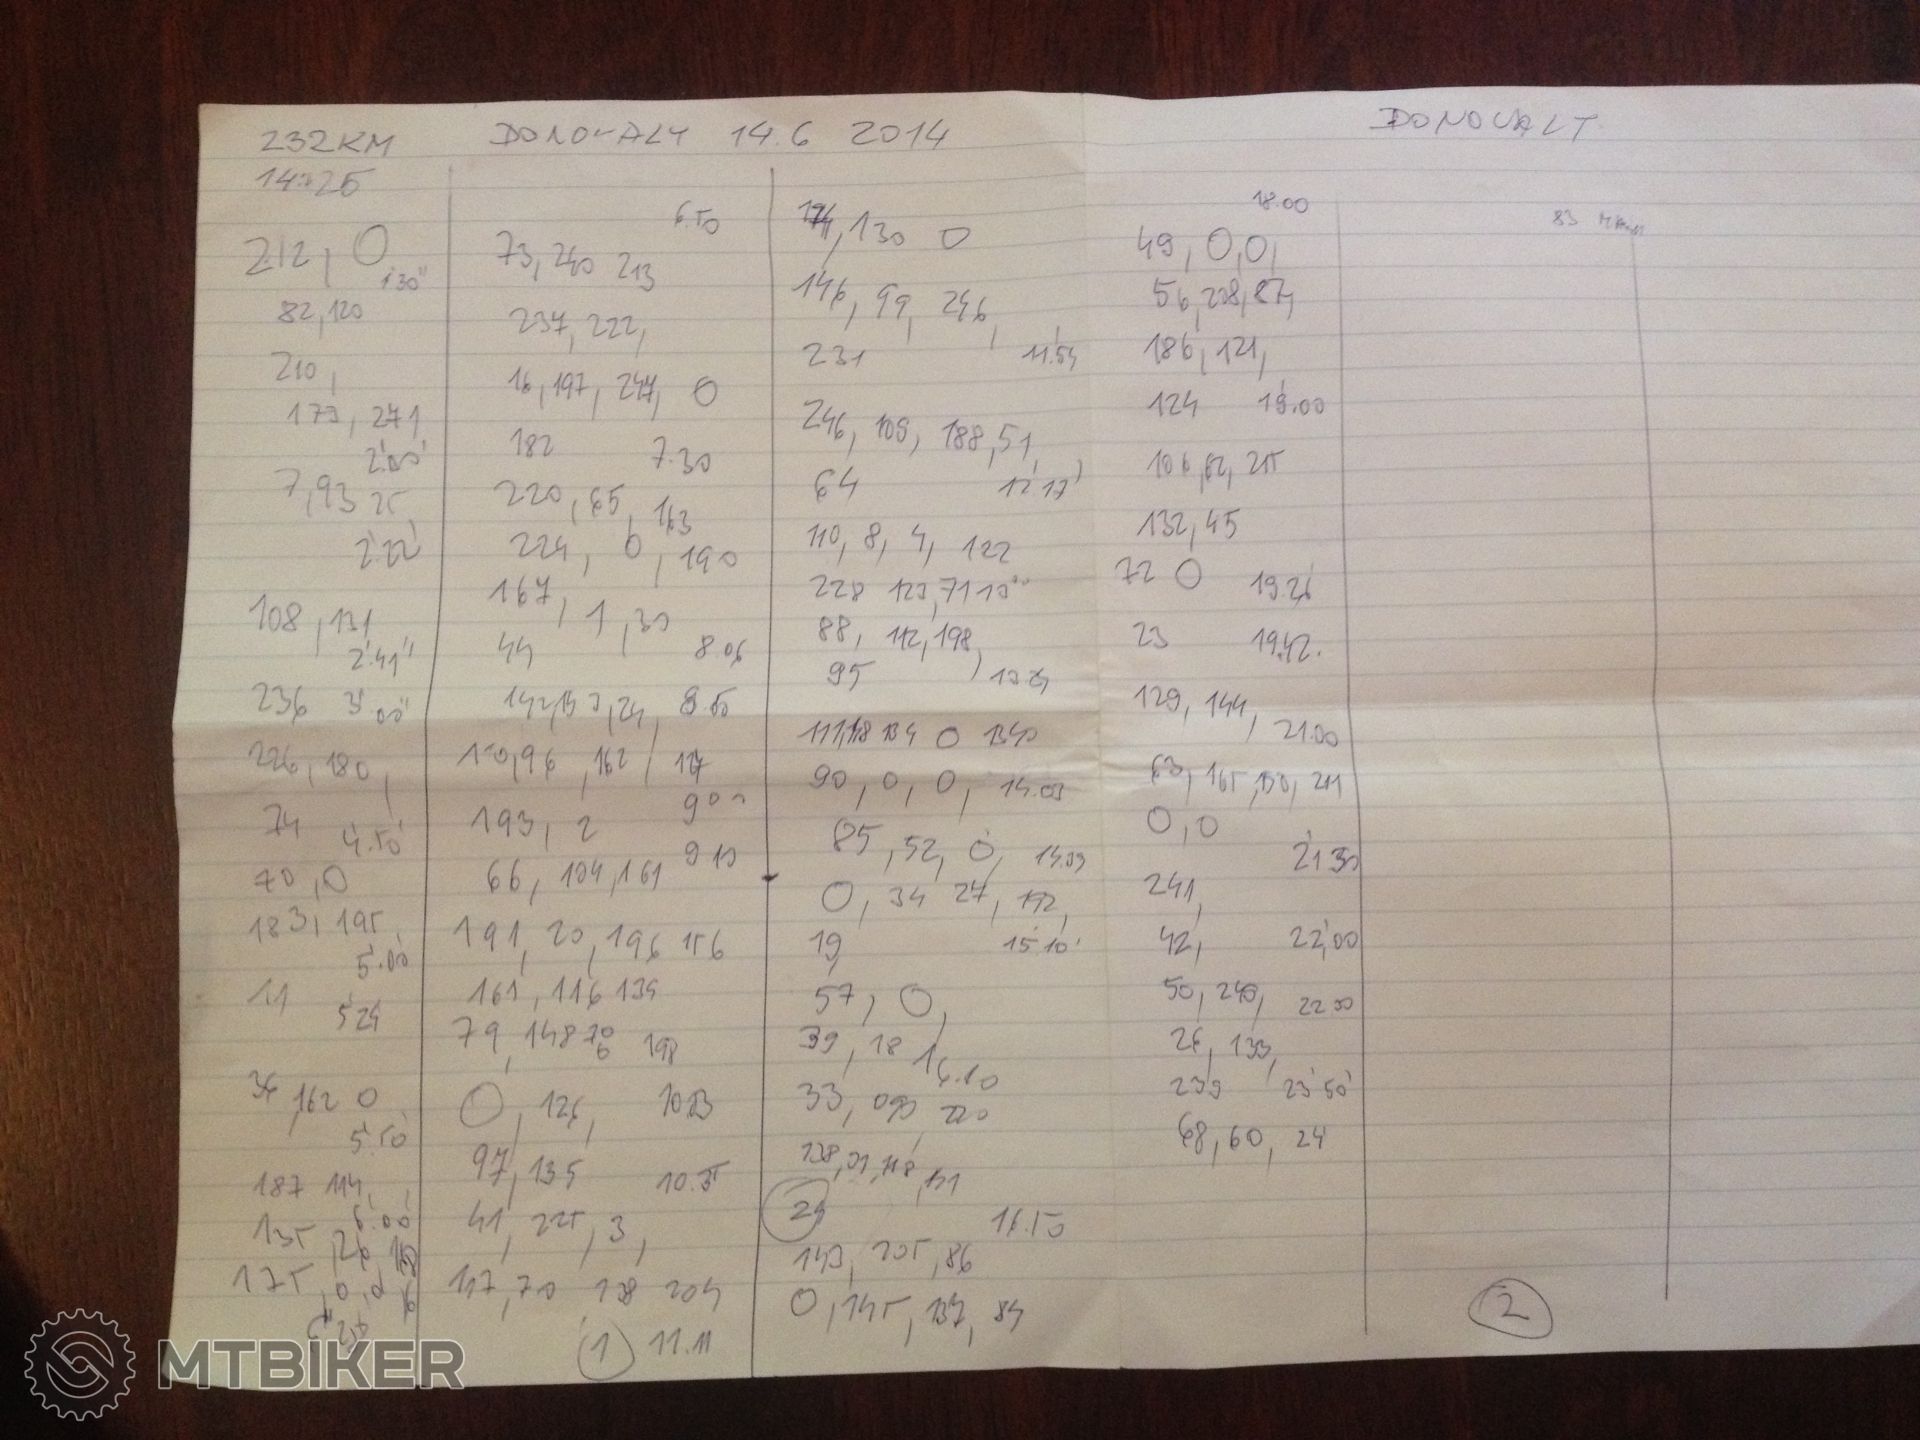 232KM DONOVALY 14.6 2014
14:25
212, 0
1'30"
82, 120
210,
179, 241
2'00'
7, 93 25
2'22'
108, 131
2'41"
236 3'00"
226, 180,
74 4.50'
70, 0
183, 195,
5.00
11
5 24
34, 162 0
5.50
187 114,
6.00
135, 26
175, 0, 0
6.50
73, 240 213
237, 222,
16, 197, 247, 0
182 7.30
220, 65, 163
224, 0, 190
167, 1, 30
44 8.06
8.50
150, 96, 162
193, 2 9 00
66, 104, 161 9 10
191, 20, 196 156
161, 116 139
79, 148 198
0, 126, 10.13
97, 135 10.35
41, 225, 3,
117, 70 128 204
1 11.11
130 0
146, 99, 246,
231 11.54
246, 109, 188, 51,
64 12'17'
110, 8, 4, 122
228 123, 71
88, 112, 198,
95
134 0 1340
90, 0, 0, 14.03
85, 52, 0, 14.09
0, 34 27, 192,
19, 15.10'
57, 0,
39, 18 16.10
33, 220
24
16.50
143, 205, 86
0, 145, 137, 84
DONOVALY
18.00
49, 0, 0,
56, 228, 87,
186, 121,
124 19.00
106, 62, 215
132, 45
72 0 19.26
23 19.42.
129, 144,
21.00
63, 165, 150, 211
0, 0
21 30
241,
42, 22,00
50, 240, 22 30
26, 133,
239 23'50'
68, 60, 24
83
2
MTBIKER